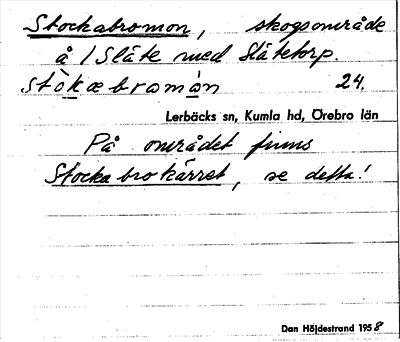 Stockabromon, skogsområde
å 1 Slåte med Slåtetorp.
stòkæbromán 24.
Lerbäcks sn, Kumla hd, Örebro län
På området finns
Stockabrokärret, se detta!
Dan Höjdestrand 1958